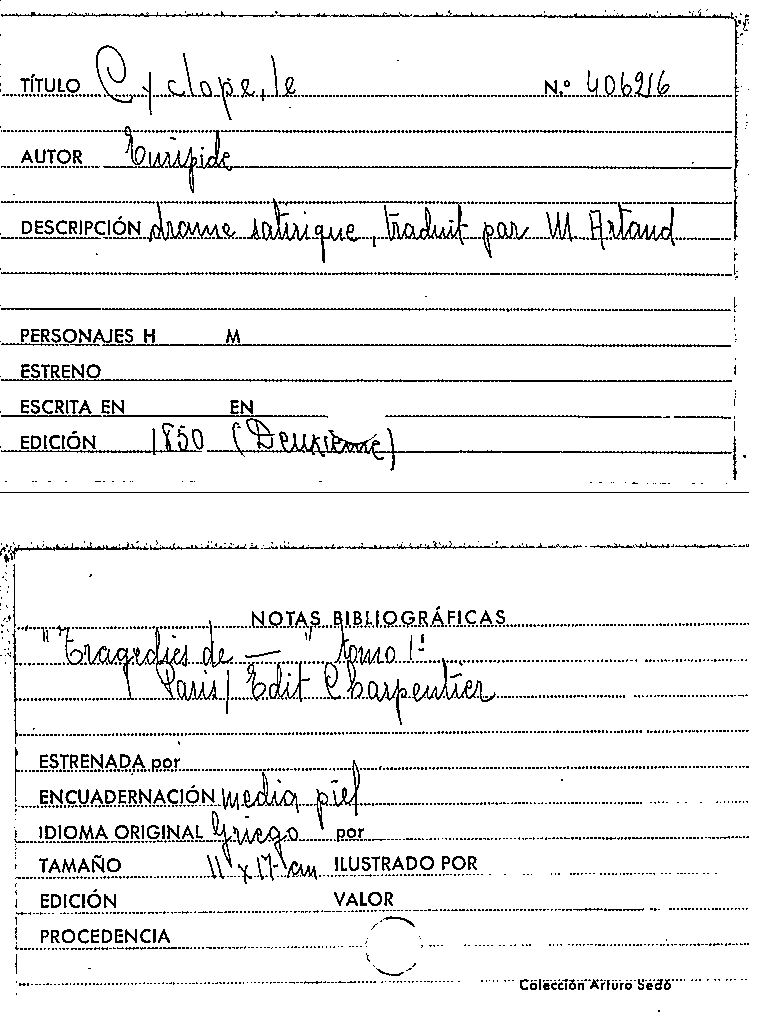 TÍTULO Cyclope, le N.º 406216
AUTOR Euripide
DESCRIPCIÓN drame satirique, traduit par M Artaud
PERSONAJES H M
ESTRENO
ESCRITA EN EN
EDICIÓN 1850 (Deuxième)
NOTAS BIBLIOGRÁFICAS
"Tragedies de — " tomo 1º
Paris / Edit Charpentier
ESTRENADA por
ENCUADERNACIÓN media piel
IDIOMA ORIGINAL Griego por
TAMAÑO 11 x 17 cm ILUSTRADO POR
EDICIÓN VALOR
PROCEDENCIA
Colección Arturo Sedó